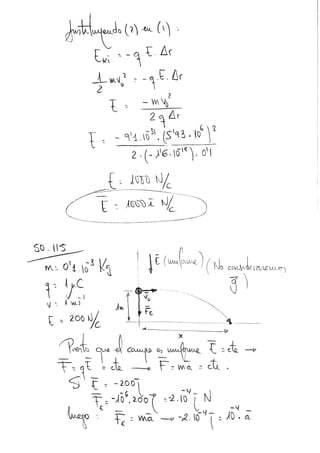 Sustituyendo (2) en (1):
E_Ki = -q E.Δr
1/2 mv₀² = -q.E.Δr
E = -mv₀² / 2qΔr
E = - 9'1.10⁻³¹.(5'93.10⁶)² / 2.(-1'6.10⁻¹⁹).0'1
E = 1000 N/C
E̅ = 1000 i̅ N/C
SO.115
m = 0'1.10⁻³ Kg
q = 1μC
v = 1 ms⁻¹
E = 200 N/C
↓E̅ (uniforme) (No consideraremos g̅)
V̅₀
F̅e
1m
x
Puesto que el campo es uniforme E̅ = cte →
F̅ = qE̅ = cte → F̅ = ma̅ = cte.
Si E̅ = -200 j̅
F̅ = -10⁻⁶.200 j̅ = -2.10⁻⁴ j̅ N
luego: F̅e = ma̅ → -2.10⁻⁴ j̅ = 10⁻⁴.a̅